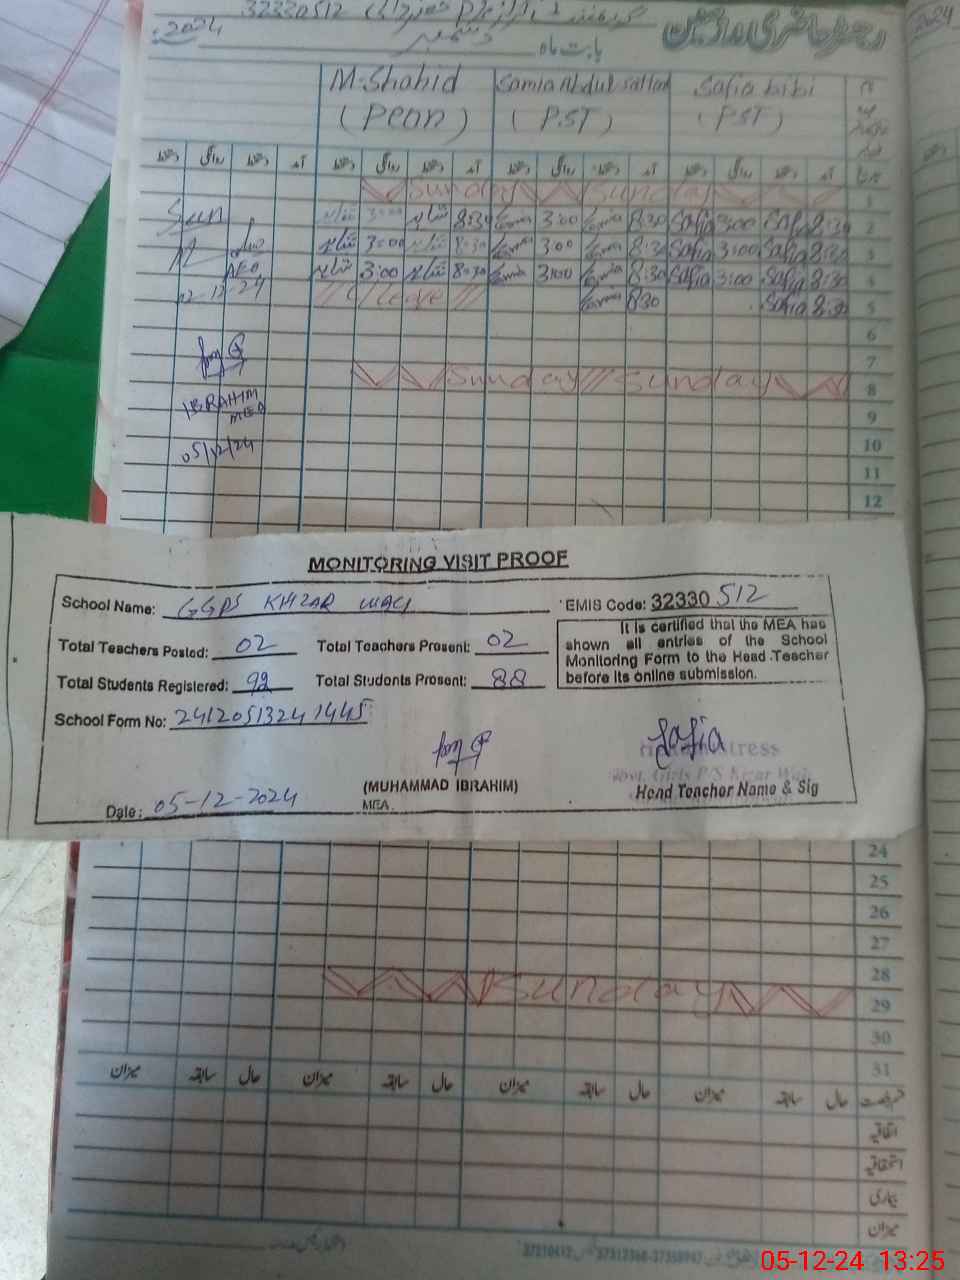 32330512
رجسٹر حاضری ملازمین
بابت ماہ دسمبر 2024
M.Shahid Samia Abdul Sattar Safia bibi
(Peon) (P.ST) (PST)
دستخط روانگی دستخط آمد دستخط روانگی دستخط آمد دستخط روانگی دستخط آمد دستخط روانگی دستخط آمد
Sunday Sunday 1
3:00 8:30 3:00 8:30 Safia 3:00 Safia 8:30 2
3:00 8:30 3:00 8:30 Safia 3:00 Safia 8:30 3
AEO 3:00 8:30 3:00 8:30 Safia 3:00 Safia 8:30 4
02-12-24 Leave 8:30 Safia 8:30 5
6
7
Sunday Sunday 8
IBRAHIM
MEA
9
05/12/24 10
11
12
MONITORING VISIT PROOF
School Name: GGPS KHIZAR WALI EMIS Code: 32330 512
Total Teachers Posted: 02 Total Teachers Present: 02
Total Students Registered: 92 Total Students Present: 88
It is certified that the MEA has
shown all entries of the School
Monitoring Form to the Head Teacher
before its online submission.
School Form No: 241205132411445
Safia
(MUHAMMAD IBRAHIM)
MEA.
Head Teacher Name & Sig
Date: 05-12-2024
24
25
26
27
28
Sunday 29
30
31
میزان سابقہ حال میزان سابقہ حال میزان سابقہ حال میزان سابقہ حال قسم رخصت
اتفاقیہ
استحقاقیہ
بیماری
میزان
05-12-24 13:25